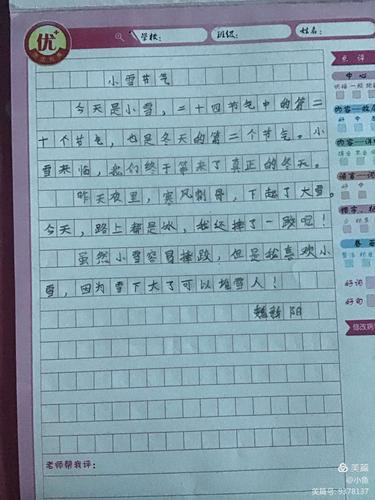 优
学校： 班级： 姓名：
小雪节气
今天是小雪，二十四节气中的第二
十个节气，也是冬天的第二个节气。小
雪来临，我们终于等来了真正的冬天。
昨天夜里，寒风刺骨，下起了大雪。
今天，路上都是冰，我还摔了一跤呢！
虽然小雪容易摔跤，但是我喜欢小
雪，因为雪下大了可以堆雪人！
阳
老师帮我评：
点评
中心
好词
好句
美篇
@小鱼
美篇号: 9378137